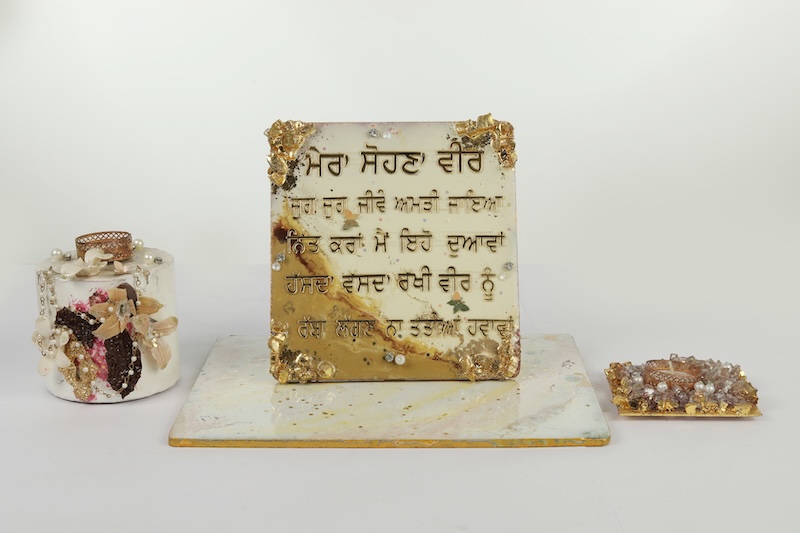 ਮੇਰਾ ਸੋਹਣਾ ਵੀਰ
ਜੁਗ ਜੁਗ ਜੀਵੇਂ ਅਮੜੀ ਜਾਇਆ
ਨਿੱਤ ਕਰਾਂ ਮੈਂ ਇਹੋ ਦੁਆਵਾਂ
ਹੱਸਦਾ ਵੱਸਦਾ ਰੱਖੀ ਵੀਰ ਨੂੰ
ਰੱਬਾ ਲੱਗਣ ਨਾ ਤੱਤੀਆਂ ਹਵਾਵਾਂ